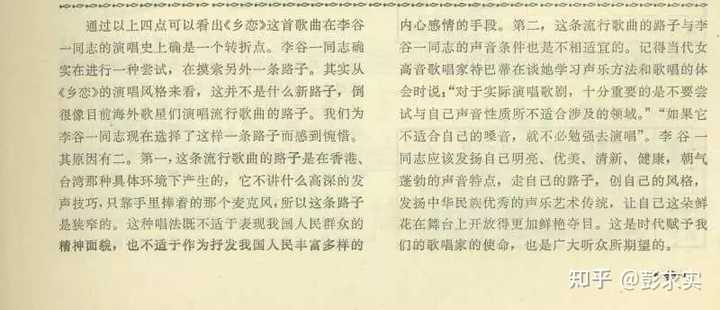 通过以上四点可以看出《乡恋》这首歌曲在李谷
一同志的演唱史上确是一个转折点。李谷一同志确
实在进行一种尝试，在摸索另外一条路子。其实从
《乡恋》的演唱风格来看，这并不是什么新路子，倒
很像目前海外歌星们演唱流行歌曲的路子。我们为
李谷一同志现在选择了这样一条路子而感到惋惜。
其原因有二。第一，这条流行歌曲的路子是在香港、
台湾那种具体环境下产生的，它不讲什么高深的发
声技巧，只靠手里捧着的那个麦克风，所以这条路子
是狭窄的。这种唱法既不适于表现我国人民群众的
精神面貌，也不适于作为抒发我国人民丰富多样的
内心感情的手段。第二，这条流行歌曲的路子与李
谷一同志的声音条件也是不相适宜的。记得当代女
高音歌唱家特巴蒂在谈她学习声乐方法和歌唱的体
会时说：“对于实际演唱歌剧，十分重要的是不要尝
试与自己声音性质所不适合涉及的领域。”“如果它
不适合自己的嗓音，就不必勉强去演唱”。李谷一
同志应该发扬自己明亮、优美、清新、健康，朝气
蓬勃的声音特点，走自己的路子，创自己的风格，
发扬中华民族优秀的声乐艺术传统，让自己这朵鲜
花在舞台上开放得更加鲜艳夺目。这是时代赋予我
们的歌唱家的使命，也是广大听众所期望的。
知乎 @彭求实